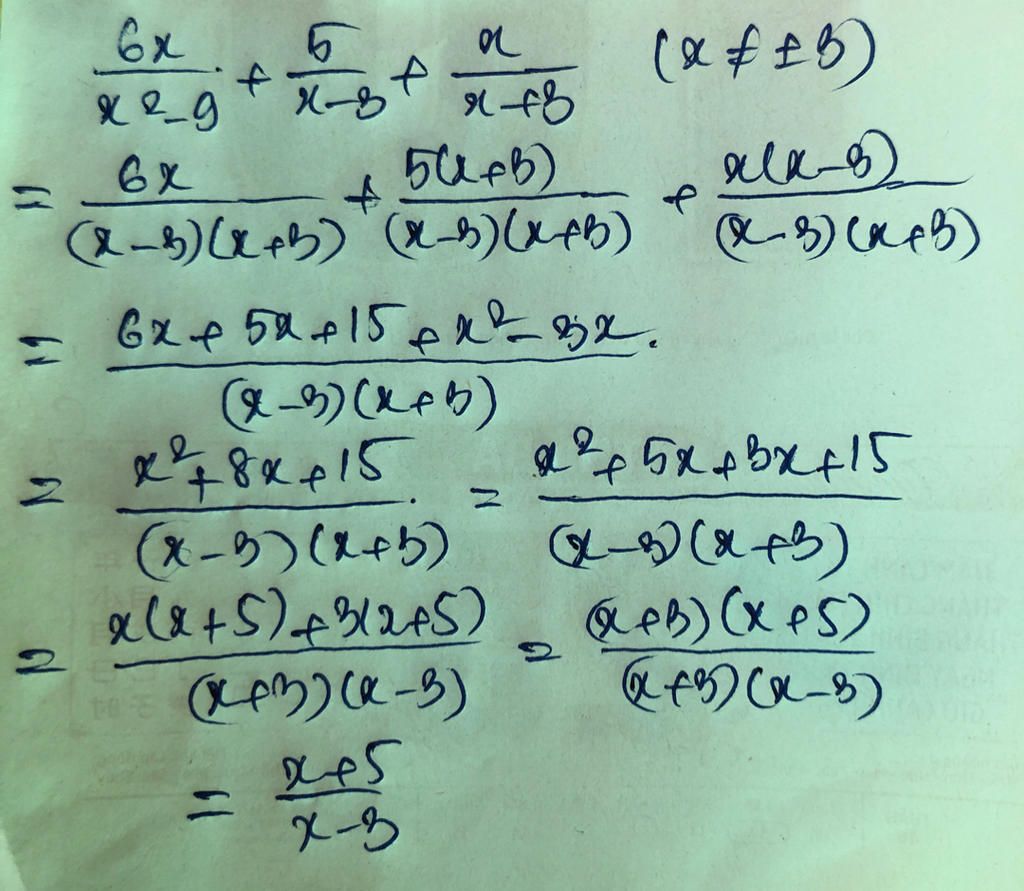 6x/(x²-9) + 5/(x-3) + x/(x+3) (x ≠ ±3)
= 6x/((x-3)(x+3)) + 5(x+3)/((x-3)(x+3)) + x(x-3)/((x-3)(x+3))
= (6x + 5x + 15 + x² - 3x)/((x-3)(x+3))
= (x² + 8x + 15)/((x-3)(x+3)) = (x² + 5x + 3x + 15)/((x-3)(x+3))
= (x(x+5) + 3(x+5))/((x+3)(x-3)) = ((x+3)(x+5))/((x+3)(x-3))
= (x+5)/(x-3)